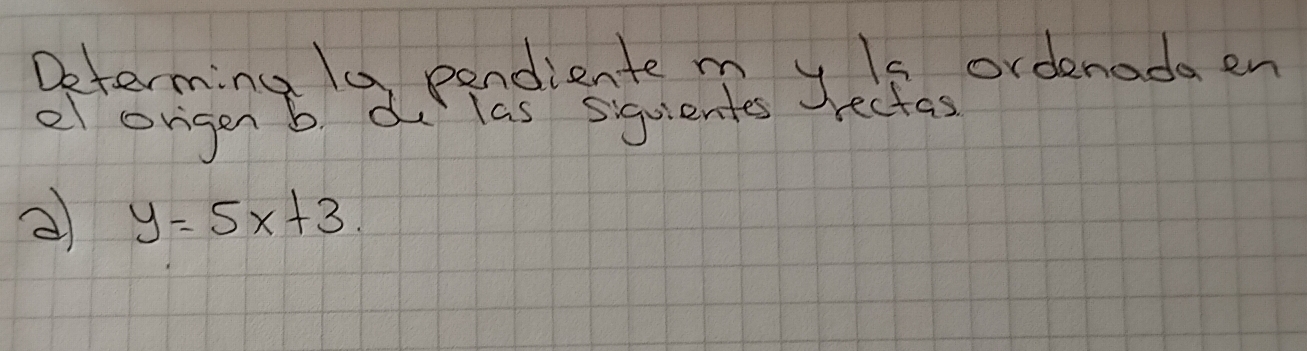 Determina la pendiente m y la ordenada en
el origen b. de las siguientes rectas.
a) y = 5x+3.